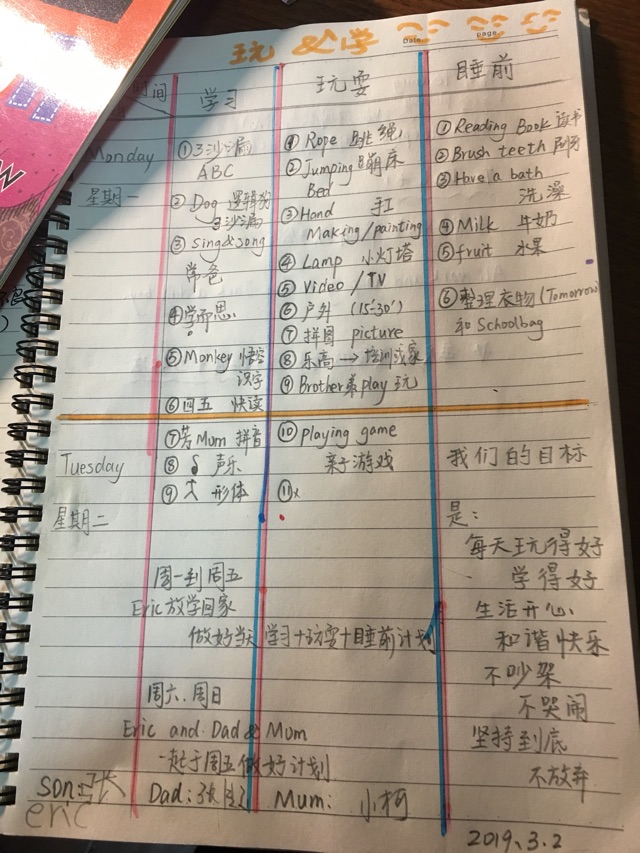 玩 & 学
Date
Page
时间
学习
玩耍
睡前
Monday
星期一
①3沙漏
ABC
②Dog 逻辑狗
3沙漏
③Sing a song
学爸
④学而思
⑤Monkey 悟空
识字
⑥四五 快读
⑦芳Mum 拼音
⑧ 声乐
⑨ 形体
①Rope 跳绳
②Jumping 蹦床
Bed
③Hand 手工
Making/painting
④Lamp 小灯塔
⑤Video/TV
⑥户外 (15-30')
⑦拼图 picture
⑧乐高→培训或家
⑨Brother来play 玩
⑩playing game
亲子游戏
⑪x
①Reading Book 读书
②Brush teeth 刷牙
③Have a bath
洗澡
④Milk 牛奶
⑤fruit 水果
⑥整理衣物(Tomorrow
和 Schoolbag
Tuesday
星期二
我们的目标
是:
每天玩得好
学得好
生活开心
和谐快乐
不吵架
不哭闹
坚持到底
不放弃
周一到周五
Eric放学回家
做好当天学习+玩耍+睡前计划
周六、周日
Eric and Dad & Mum
一起于周五做好计划
son: 张
eric
Dad: 张
Mum: 小柯
2019.3.2